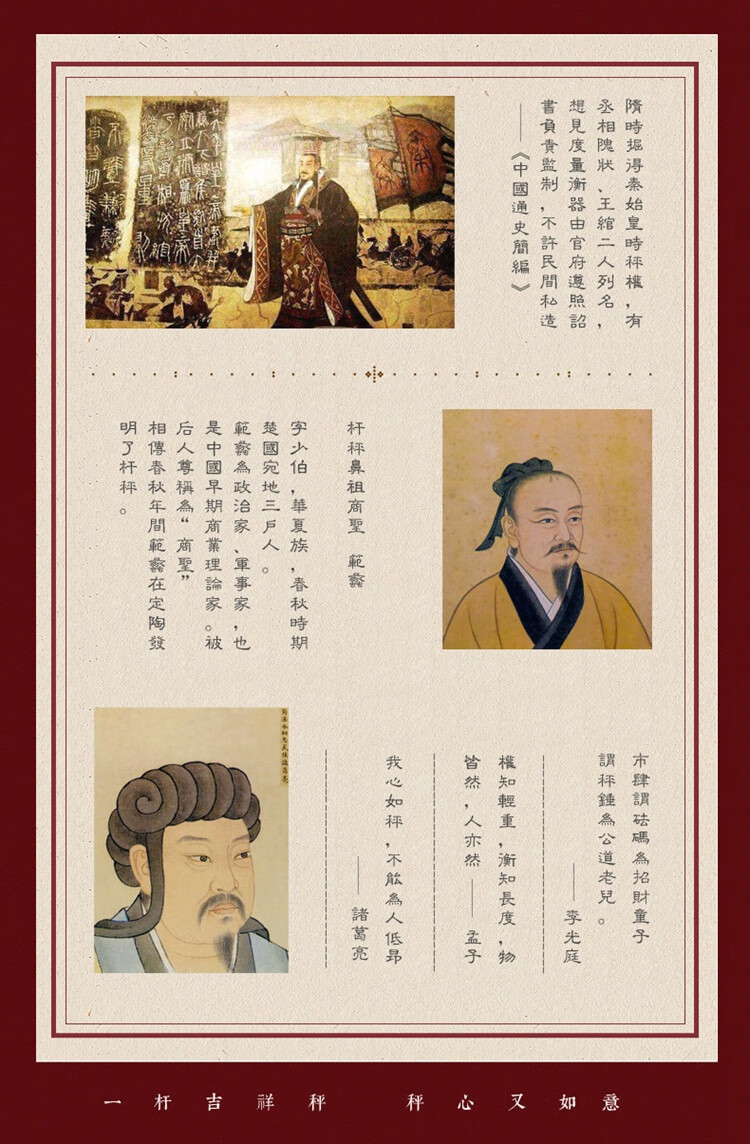 隋時掘得秦始皇時秤權，有
丞相隗狀、王綰二人列名，
想見度量衡器由官府遵照詔
書負責監制，不許民間私造
——《中國通史簡編》
杆秤鼻祖商聖 範蠡
字少伯，華夏族，春秋時期
楚國宛地三戶人。
範蠡為政治家、軍事家，也
是中國早期商業理論家。被
后人尊稱為“商聖”
相傳春秋年間範蠡在定陶發
明了杆秤。
市肆謂砝碼為招財童子
謂秤錘為公道老兒。
——李光庭
權知輕重，衡知長度，物
皆然，人亦然——孟子
我心如秤，不能為人低昂
——諸葛亮
一杆吉祥秤 秤心又如意